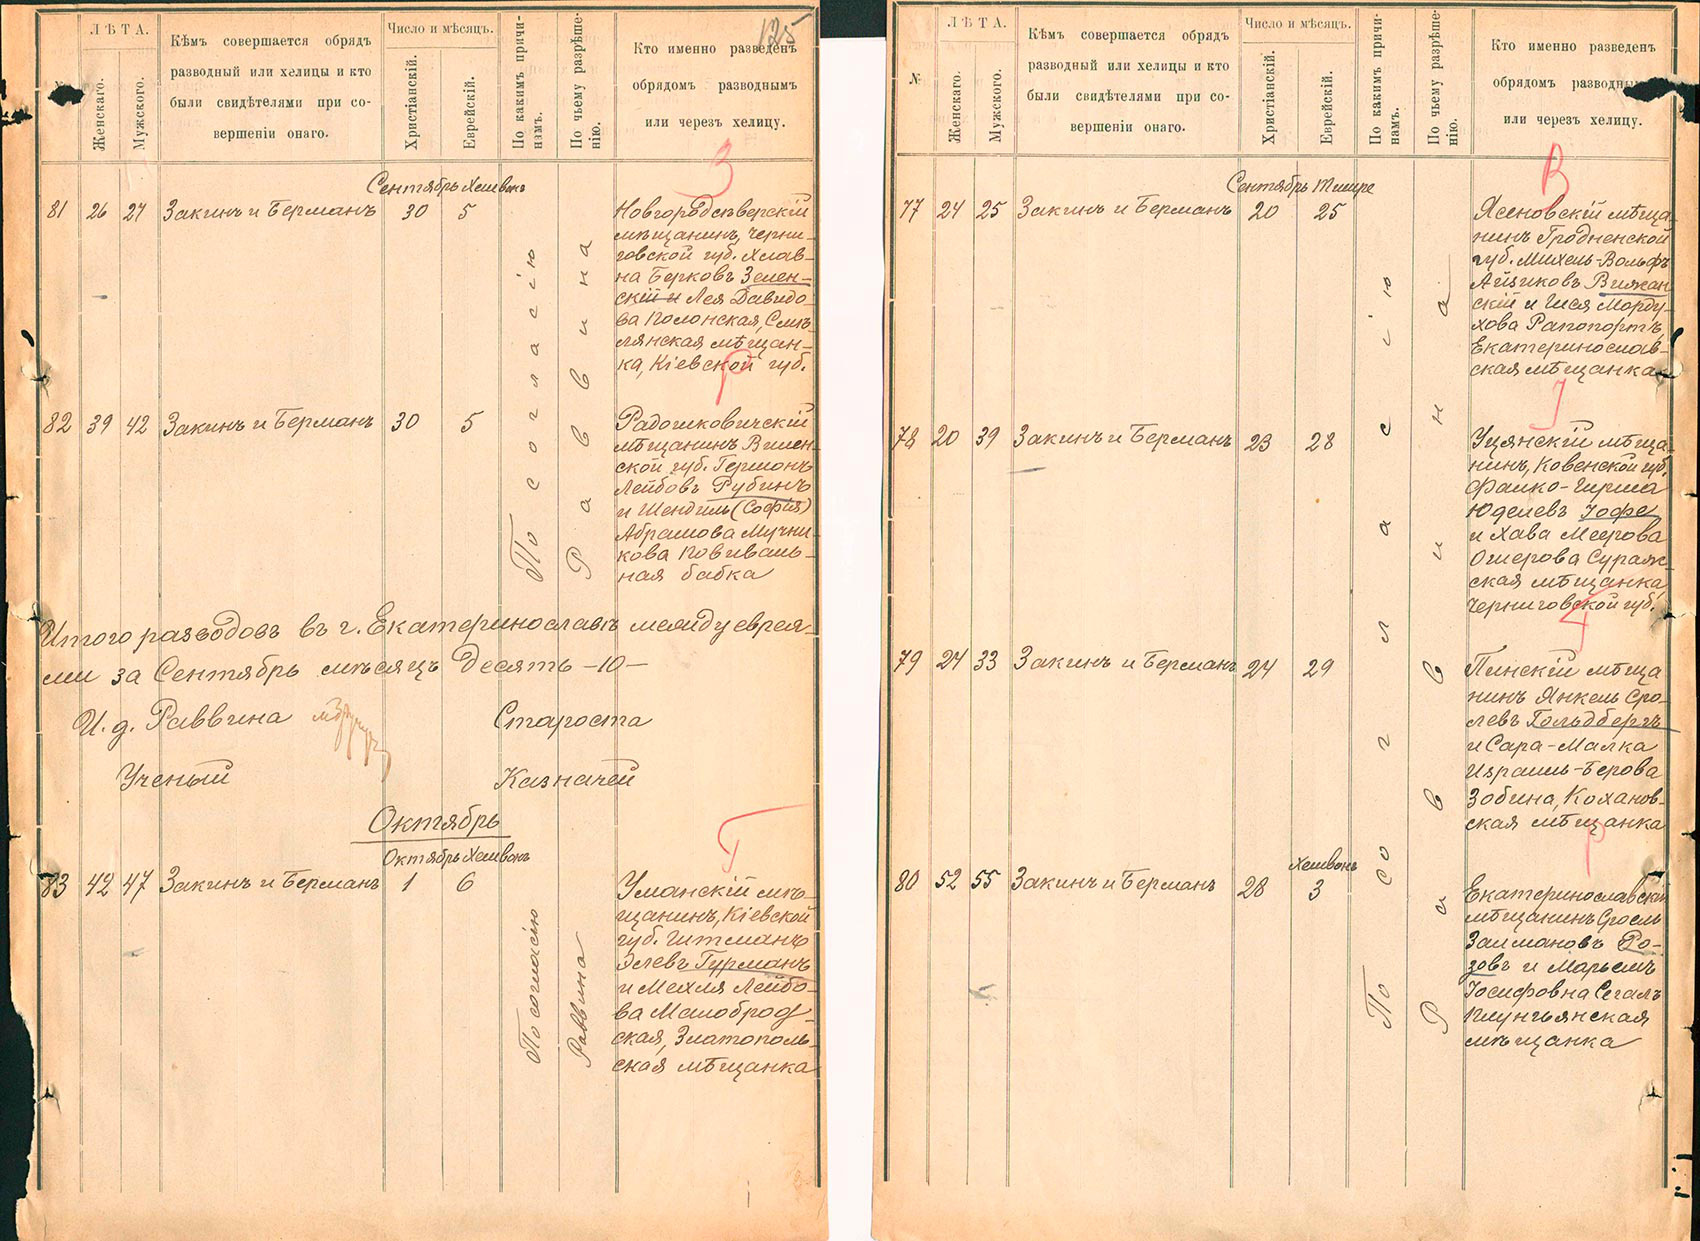 125
№
ЛѢТА.
Женскаго.
Мужского.
Кѣмъ совершается обрядъ
разводный или хелицы и кто
были свидѣтелями при со-
вершеніи онаго.
Число и мѣсяцъ.
Христіанскій.
Еврейскій.
По какимъ причи-
намъ.
По чьему разрѣше-
нію.
Кто именно разведенъ
обрядомъ разводнымъ
или черезъ хелицу.
З
Сентябрь Хешвонъ
81 26 27 Закинъ и Берманъ 30 5
Новгородсѣверскій
мѣщанинъ, Черни-
говской губ. Хлав-
на Берковъ Зелен-
скій и Лея Давидо-
ва Полонская, Смѣ-
лянская мѣщан-
ка, Кіевской губ.
Р
82 39 42 Закинъ и Берманъ 30 5
Радошковичскій
мѣщанинъ Вилен-
ской губ. Гершонъ
Лейбовъ Рубинъ
и Шендиль (Софія)
Абрамова Мучни-
кова повиваль-
ная бабка
По согласію
Раввина
Итого разводовъ въ г. Екатеринославѣ между еврея-
ми за Сентябрь мѣсяцъ десять -10-
И. д. Раввина
Староста
Ученый
Казначей
Октябрь
Октябрь Хешвонъ
Г
83 42 47 Закинъ и Берманъ 1 6
По согласію
Раввина
Уманскій мѣ-
щанинъ, Кіевской
губ. Гитманъ
Элевъ Гурманъ
и Мехля Лейбо-
ва Малоброд-
ская, Златополь-
ская мѣщанка
№
ЛѢТА.
Женскаго.
Мужского.
Кѣмъ совершается обрядъ
разводный или хелицы и кто
были свидѣтелями при со-
вершеніи онаго.
Число и мѣсяцъ.
Христіанскій.
Еврейскій.
По какимъ причи-
намъ.
По чьему разрѣше-
нію.
Кто именно разведенъ
обрядомъ разводнымъ
или черезъ хелицу.
В
Сентябрь Тишре
77 24 25 Закинъ и Берманъ 20 25
Ясеновскій мѣща-
нинъ Гродненской
губ. Михель-Вольфъ
Айзиковъ Вижан
скій и Гися Морду-
хова Рапопортъ,
Екатеринослав-
ская мѣщанка
І
78 20 39 Закинъ и Берманъ 23 28
Уцянскій мѣща-
нинъ, Ковенской губ.
Фалко-Гирша
Юделевъ Іофе
и Хава Меерова
Ошерова Сураж-
ская мѣщанка
Черниговской губ.
Г
79 24 33 Закинъ и Берманъ 24 29
Пинскій мѣща
нинъ Янкель Сро-
левъ Гольдбергъ
и Сара-Малка
Израиль-Берова
Зобина, Коханов-
ская мѣщанка
Р
Хешвонъ
80 52 55 Закинъ и Берманъ 28 3
Екатеринославскій
мѣщанинъ Сроель
Залмановъ Ро-
зовъ и Марьемъ
Іосифовна Сегалъ
Плунгьянская
мѣщанка
По согласію
Раввина